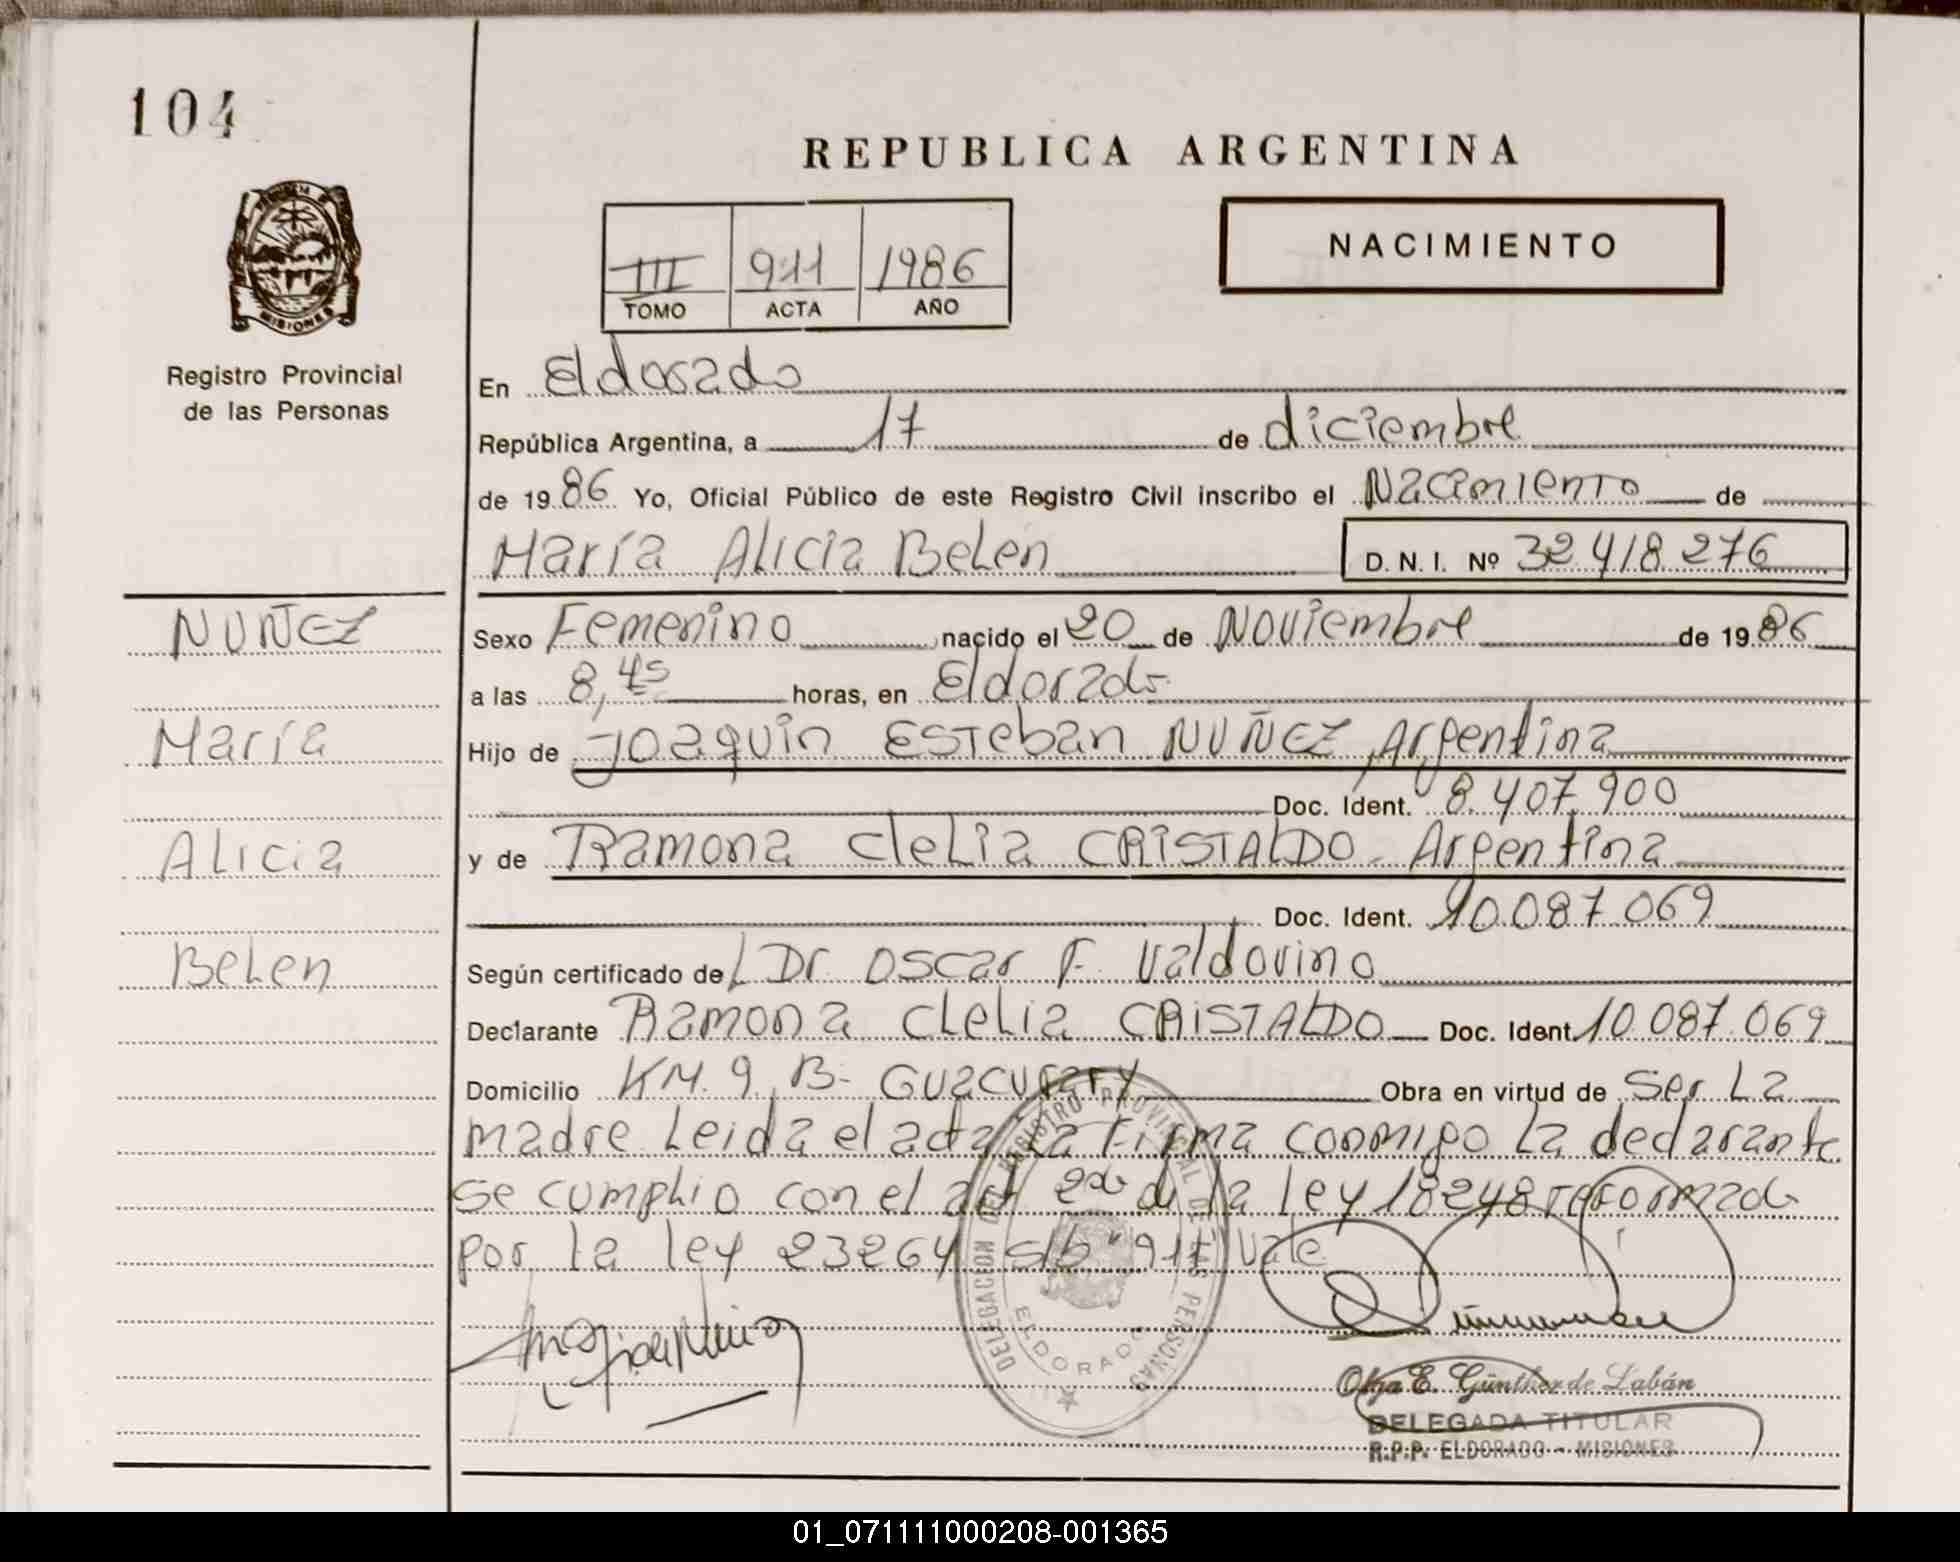 104
REPUBLICA ARGENTINA
MISIONES
III 911 1986
TOMO ACTA AÑO
NACIMIENTO
Registro Provincial
de las Personas
En Eldorado
República Argentina, a 17 de diciembre
de 1986 Yo, Oficial Público de este Registro Civil inscribo el Nacimiento de
María Alicia Belen D. N. I. Nº 32418276
NUÑEZ
María
Alicia
Belen
Sexo Femenino nacido el 20 de Noviembre de 1986
a las 8,45 horas, en Eldorado
Hijo de Joaquin Esteban NUÑEZ, Argentina
Doc. Ident. 8.407.900
y de Ramona Clelia CRISTALDO. Argentina
Doc. Ident. 10.087.069
Según certificado del Dr. Oscar F. Valdovino
Declarante Ramona Clelia CRISTALDO Doc. Ident. 10.087.069
Domicilio KM. 9 B- Guacurary Obra en virtud de ser La
madre Leida el acta La Firma conmigo La declarante
se cumplio con el art 2do de la ley 18248 reformado
por la ley 23264 s/b "911 Vale
DELEGACION DEL REGISTRO PROVINCIAL DE LAS PERSONAS
ELDORADO
Olga E. Günther de Labán
DELEGADA TITULAR
R.P.P. ELDORADO - MISIONES
01_071111000208-001365